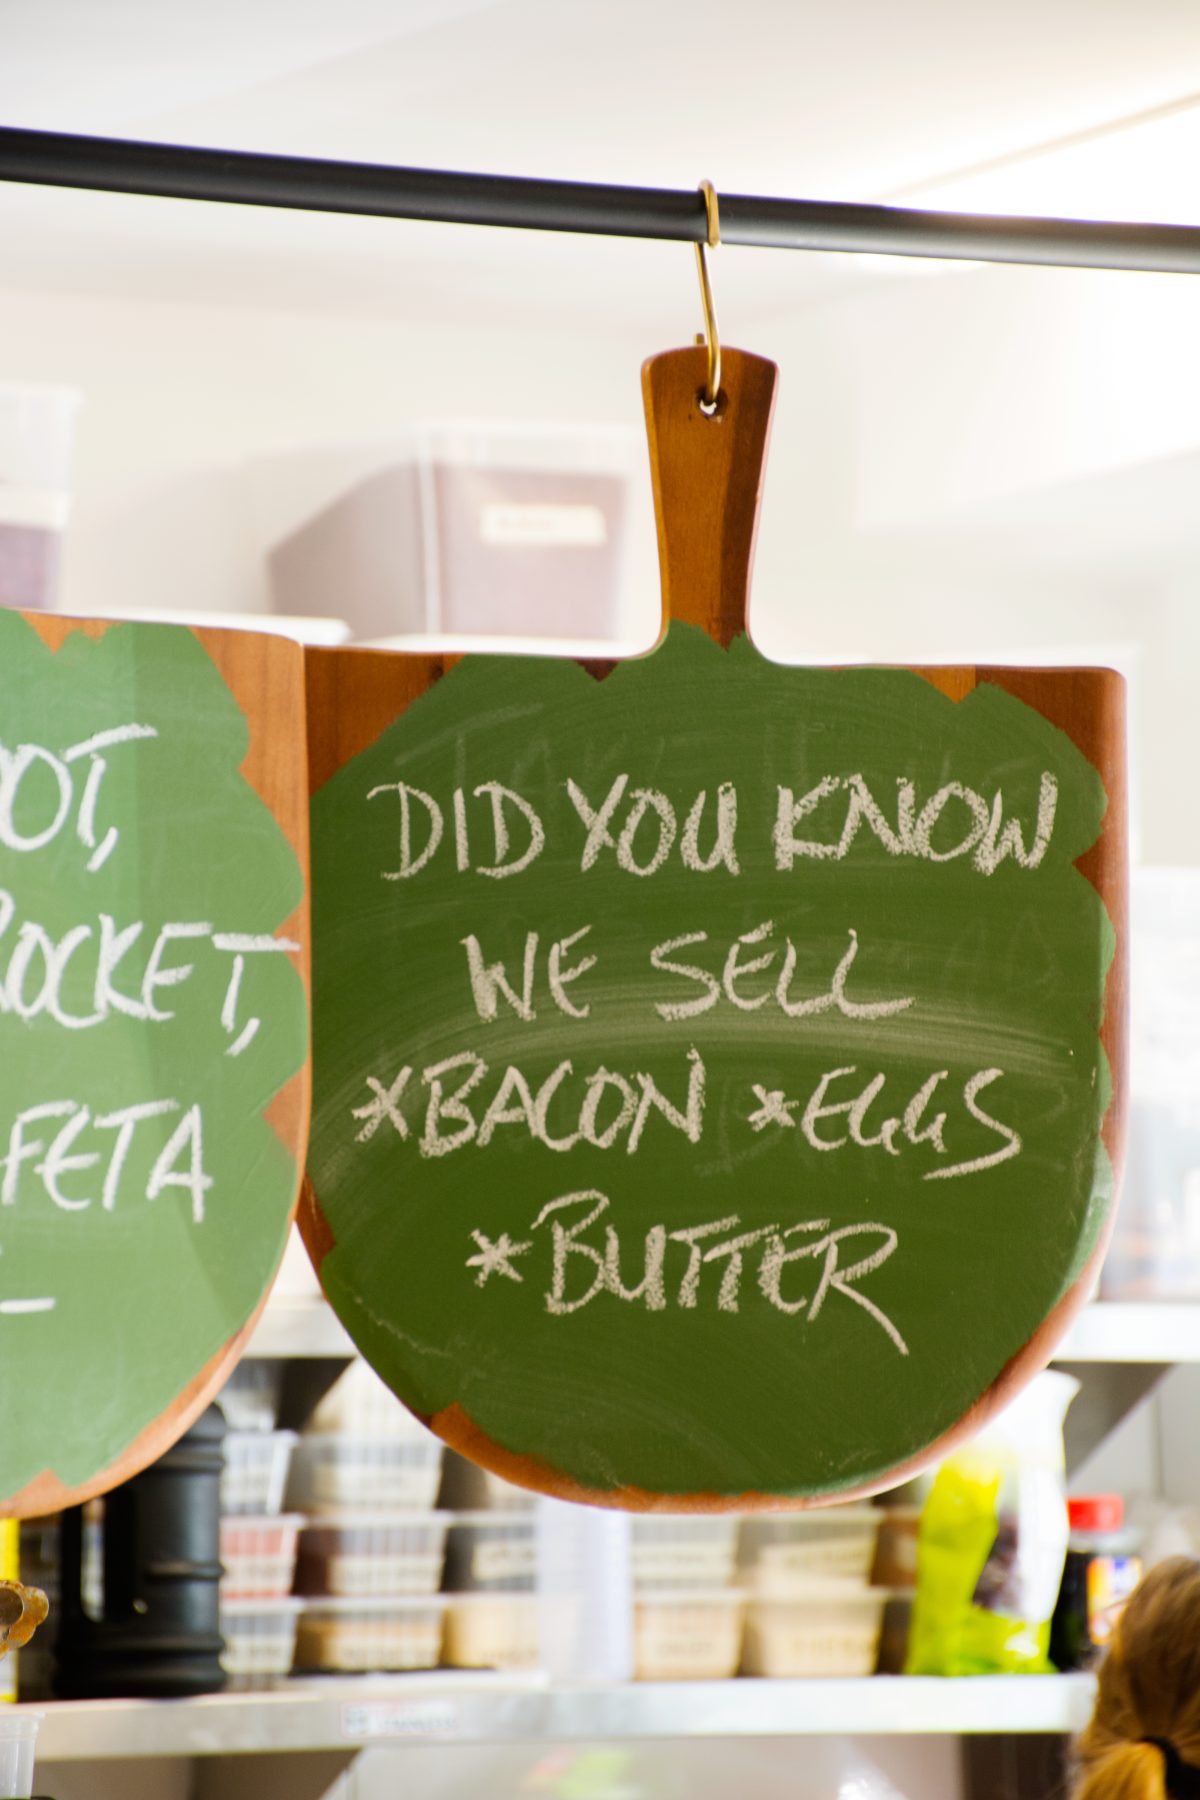 ROCKET,
FETA
DID YOU KNOW
WE SELL
*BACON *EGGS
*BUTTER